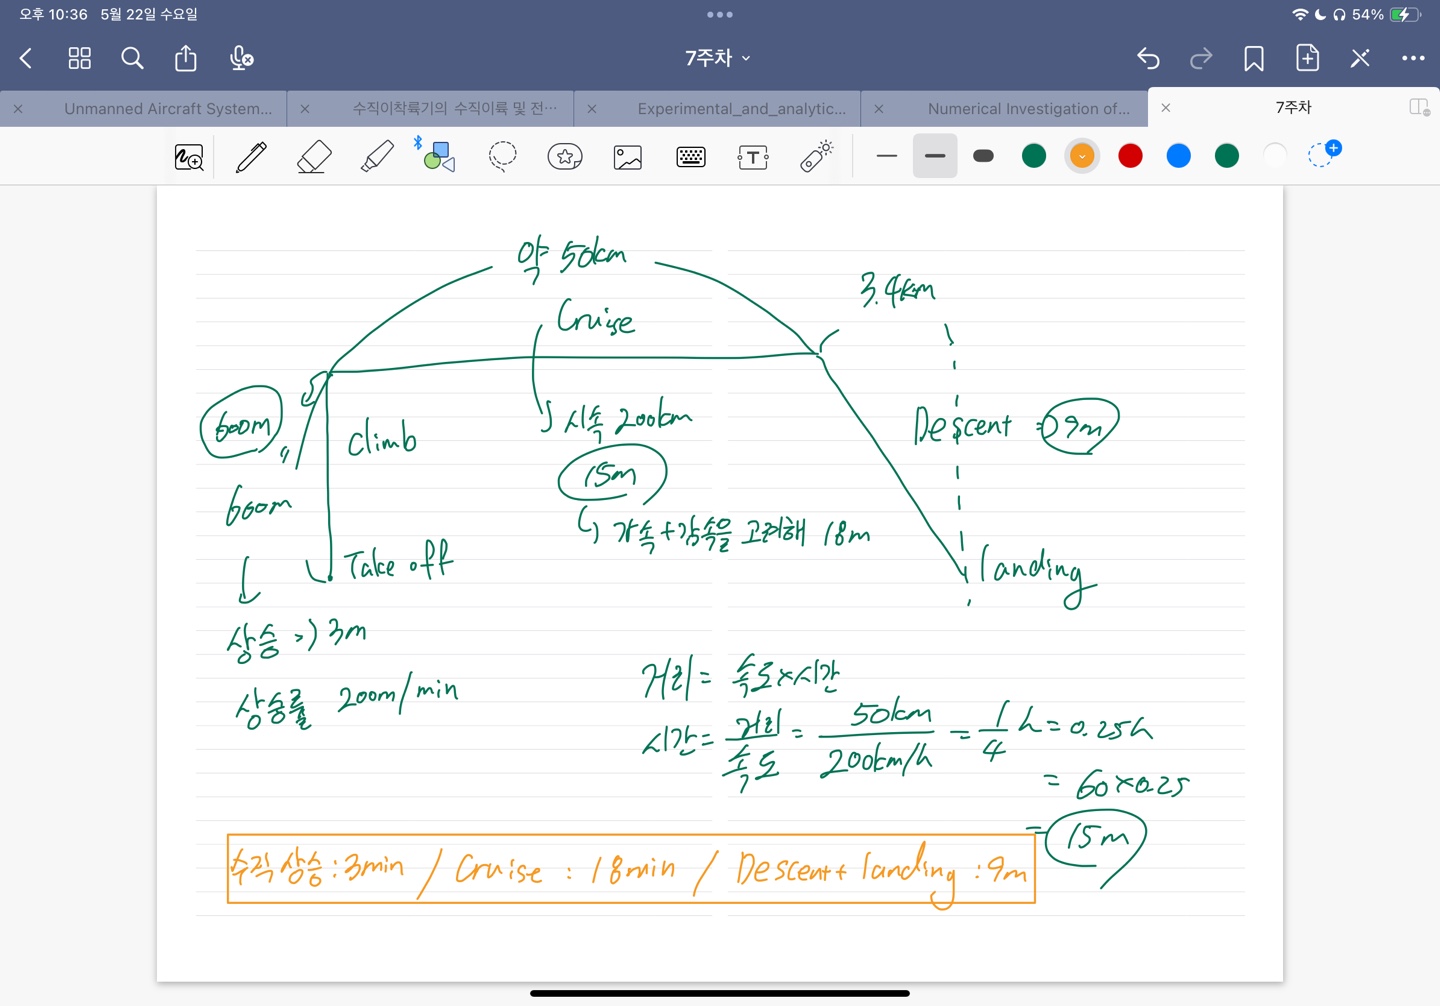 오후 10:36 5월 22일 수요일
54%
7주차
Unmanned Aircraft System...
수직이착륙기의 수직이륙 및 전…
Experimental_and_analytic...
Numerical Investigation of...
7주차
약 50km
3.4km
Cruise
600m
Climb
시속 200km
Descent => 9m
15m
600m
가속+감속을 고려해 18m
Take off
landing
상승 => 3m
상승률 200m/min
거리 = 속도×시간
시간 = 거리/속도 = 50km/200km/h = 1/4 h = 0.25h
= 60×0.25
= 15m
수직상승:3min / Cruise : 18min / Descent+ landing : 9m